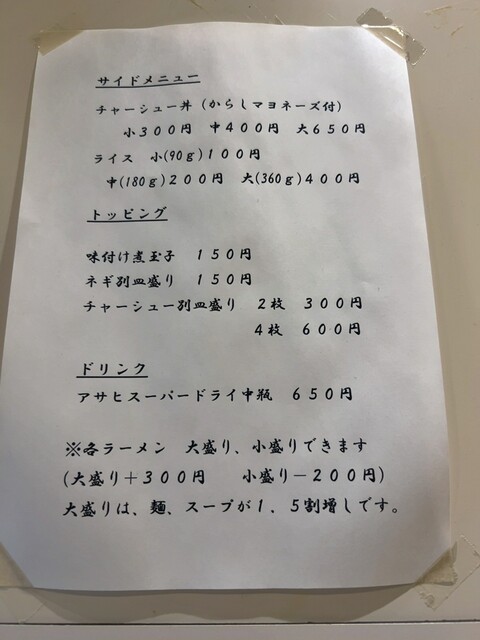 サイドメニュー
チャーシュー丼（からしマヨネーズ付）
小３００円　中４００円　大６５０円
ライス　小(90ｇ)１００円
中(180ｇ)２００円　大(360ｇ)４００円
トッピング
味付け煮玉子　１５０円
ネギ別皿盛り　１５０円
チャーシュー別皿盛り　２枚　３００円
４枚　６００円
ドリンク
アサヒスーパードライ中瓶　６５０円
※各ラーメン　大盛り、小盛りできます
(大盛り＋３００円　　小盛り－２００円)
大盛りは、麺、スープが１．５割増しです。